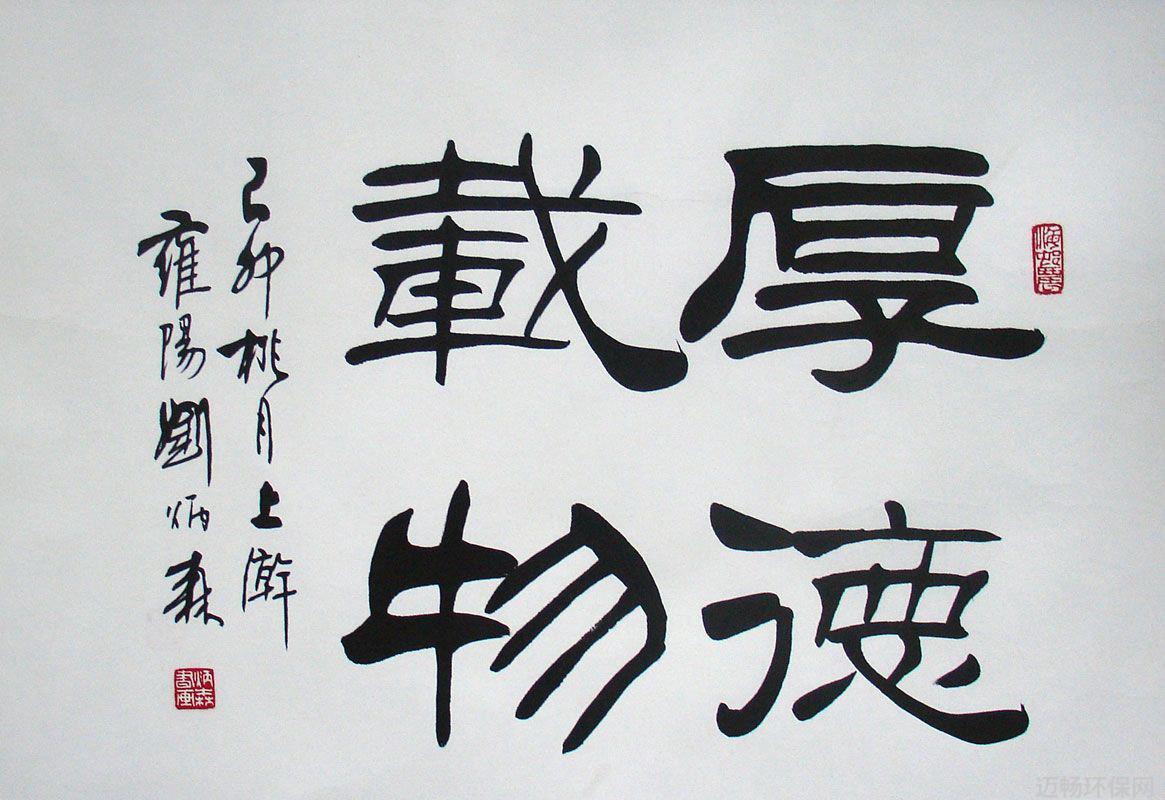 厚德
載物
己卯桃月上澣
雍陽劉炳森
炳森
書画
迈畅环保网